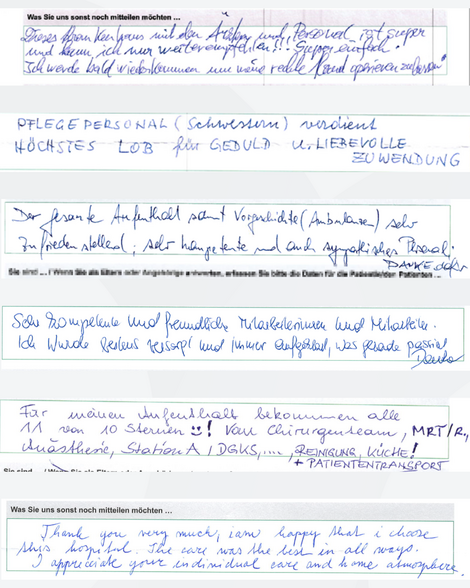 Was Sie uns sonst noch mitteilen möchten ...
Dieses Krankenhaus mit den Ärzten und Personal ist super
und kann ich nur weiterempfehlen!!! Super einfach!
Ich werde bald wiederkommen um meine rechte Hand operieren zu lassen!
PFLEGEPERSONAL (Schwestern) verdient
HÖCHSTES LOB für GEDULD u. LIEBEVOLLE
ZUWENDUNG
Der gesamte Aufenthalt samt Vorgeschichte (Ambulanzen) sehr
zufriedenstellend; sehr kompetente und auch sympathisches Personal.
DANKE dafür
Sie sind ... / Wenn Sie als Eltern oder Angehörige antworten, erfassen Sie bitte die Daten für die Patientin/den Patienten ...
Sehr kompetente und freundliche Mitarbeiterinnen und Mitarbeiter.
Ich wurde bestens versorgt und immer aufgeklärt, was gerade passiert
Danke
Für meinen Aufenthalt bekommen alle
11 von 10 Sternen! Vom Chirurgenteam, MRT/R.,
Anästhesie, Station A, DGKS, ..., REINIGUNG, KÜCHE!
+ PATIENTENTRANSPORT
Was Sie uns sonst noch mitteilen möchten ...
Thank you very much, iam happy that i choose
this hospital. The care was the best in all ways.
I appreciate your individual care and home atmosphere